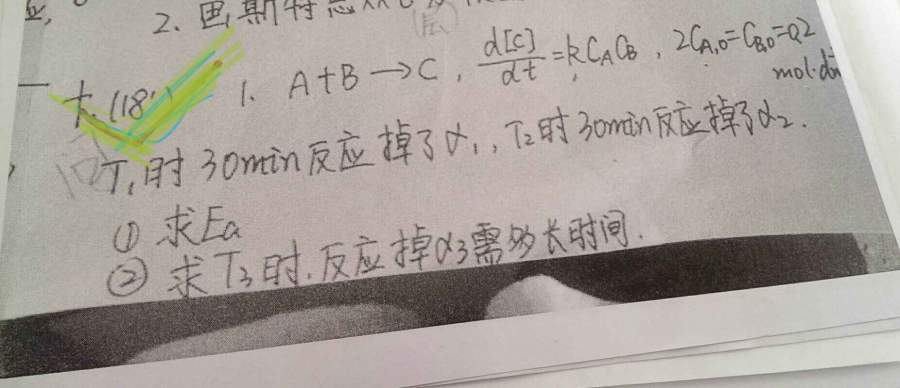 2. 巴斯特
十. (18') 1. A+B→C, d[C]/dt=kCACB, 2CA,0=CB,0=0.2
mol·dm
T1时30min反应掉了α1, T2时30min反应掉了α2.
① 求Ea
② 求T3时,反应掉α3需多长时间.